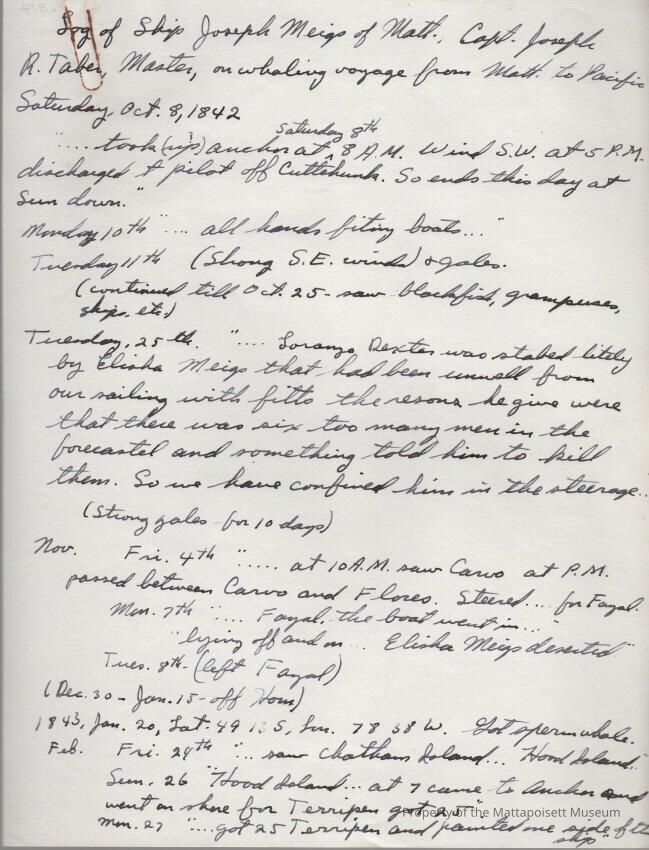 Log of Ship Joseph Meigs of Matt., Capt. Joseph
R. Taber, Master, on whaling voyage from Matt. to Pacific
Saturday, Oct. 8, 1842
Saturday 8th
".... took (up) anchor at 8 A.M. Wind S.W. at 5 P.M.
discharged + pilot off Cuttehunk. So ends this day at
Sun down."
Monday 10th ".... all hands fiting boats..."
Tuesday 11th (Strong S.E. winds) & gales.
(continued till Oct. 25 - saw blackfish, grampuses,
ships. etc.)
Tuesday, 25th. ".... Loranzo Dexter was stabed litely
by Elisha Meigs that had been unwell from
our sailing with fitts the resons he give were
that there was six too many men in the
forecastel and something told him to kill
them. So we have confined him in the steerage..
(Strong gales for 10 days)
Nov. Fri. 4th "..... at 10 A.M. saw Carvo at P.M.
passed between Carvo and Flores. Steered.... for Fayal.
Mon. 7th ".... Fayal, the boat went in..."
"lying off and on... Elisha Meigs deserted"
Tues. 8th - (left Fayal)
(Dec. 30 - Jan. 15 - off Horn)
1843, Jan. 20, Lat. 49 13 S, Lon. 78 58 W. Got sperm whale.
Feb. Fri. 24th "... saw Chatham Island... Hood Island."
Sun. 26 "Hood Island... at 7 came to Anchor and
went on shore for Terripen got 25"
Mon. 27 "....got 25 Terripen and painted one side of the
ship"
Property of the Mattapoisett Museum